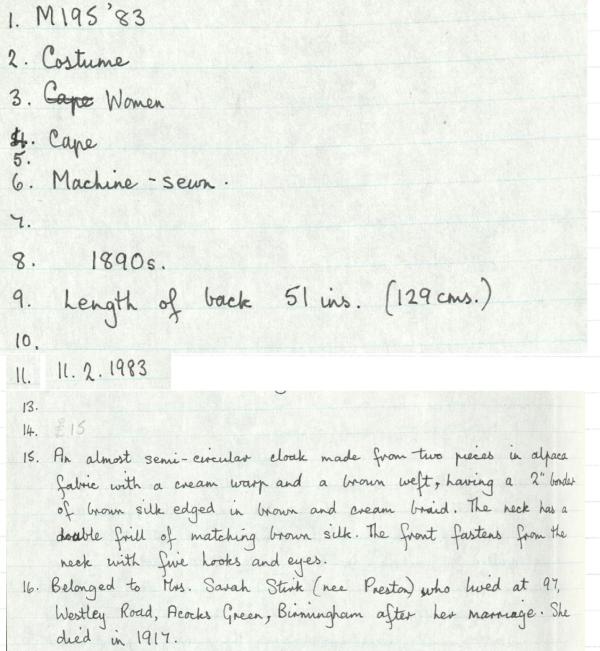 1. M195 '83
2. Costume
3. Cape Women
4. Cape
5.
6. Machine - sewn.
7.
8. 1890s.
9. Length of back 51 ins. (129 cms.)
10.
11. 11. 2. 1983
13.
14. £15
15. An almost semi-circular cloak made from two pieces in alpaca
fabric with a cream warp and a brown weft, having a 2" border
of brown silk edged in brown and cream braid. The neck has a
double frill of matching brown silk. The front fastens from the
neck with five hooks and eyes.
16. Belonged to Mrs. Sarah Stirk (nee Preston) who lived at 97,
Westley Road, Acocks Green, Birmingham after her marriage. She
died in 1917.